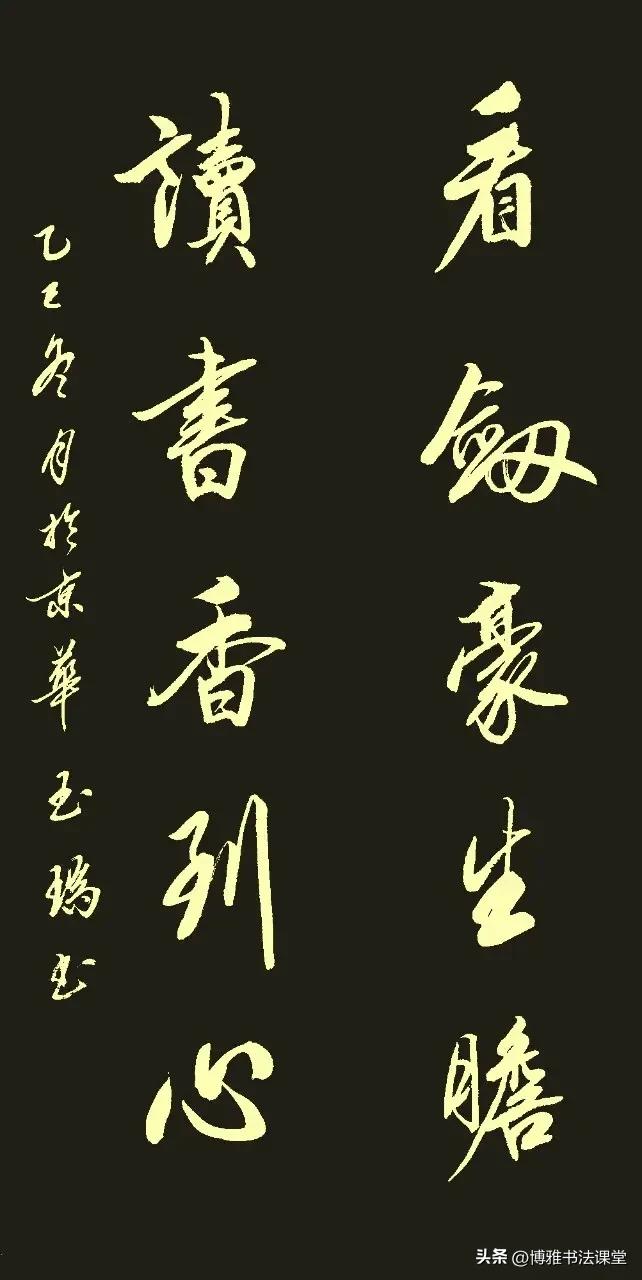 看劒豪生膽
讀書香到心
乙巳冬月於京華玉书
头条 @博雅书法课堂